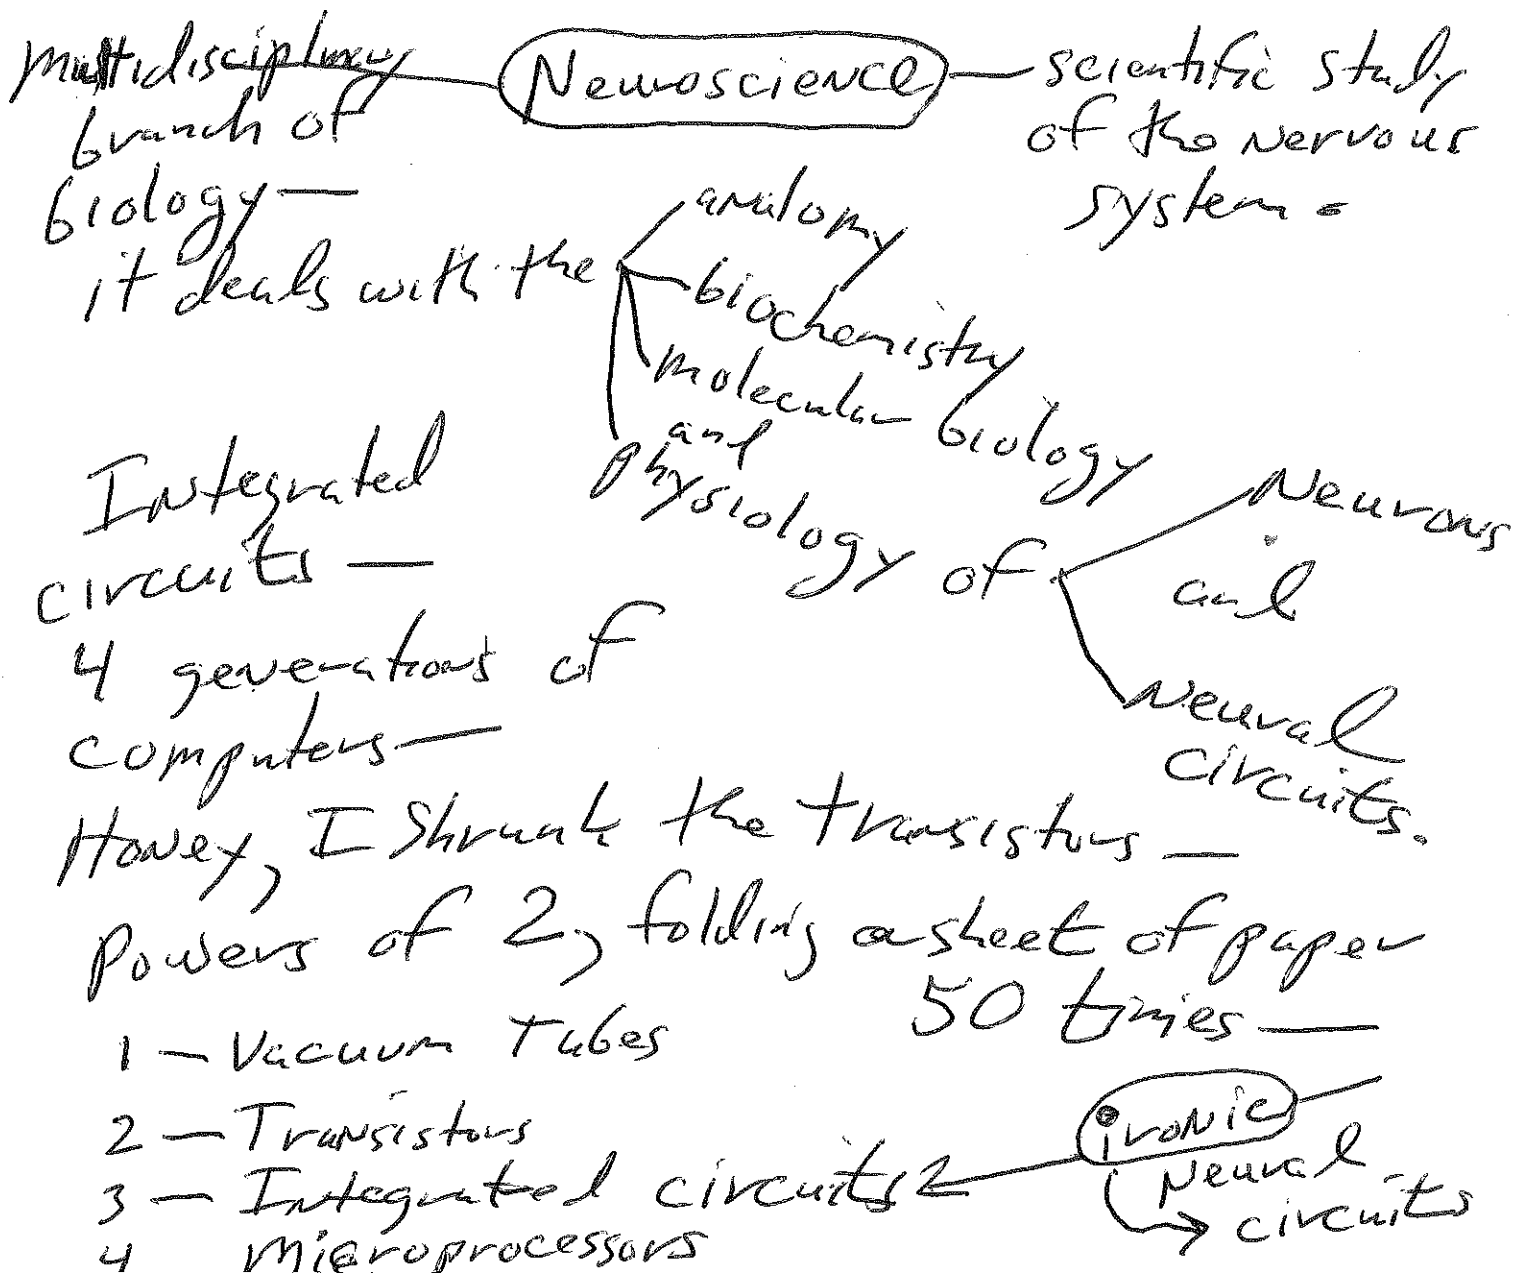 Multidisciplinary
branch of
biology —
Neuroscience — scientific study
of the nervous
system.
it deals with the
anatomy
biochemistry
molecular biology
and
physiology of
Neurons
and
Neural
circuits.
Integrated
circuits —
4 generations of
computers —
Honey, I Shrunk the transistors —
Powers of 2, folding a sheet of paper
50 times —
1 — Vacuum Tubes
2 — Transistors
3 — Integrated circuits
4 Microprocessors
ironic
Neural
circuits